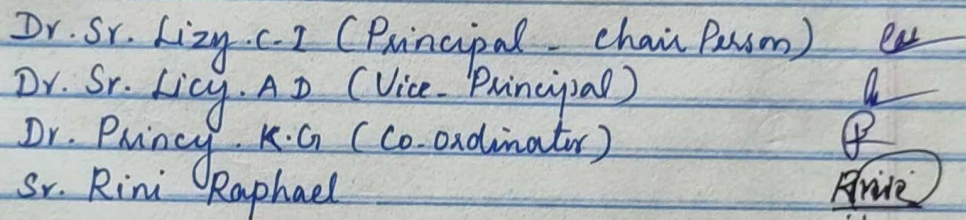 Dr. Sr. Lizy. C. I (Principal - Chair Person)
Dr. Sr. Licy. A D (Vice - Principal)
Dr. Princy. K.G (Co-ordinator)
Sr. Rini Raphael Rini